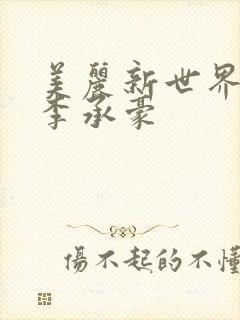 美麗新世界
李承豪
傷不起的不懂